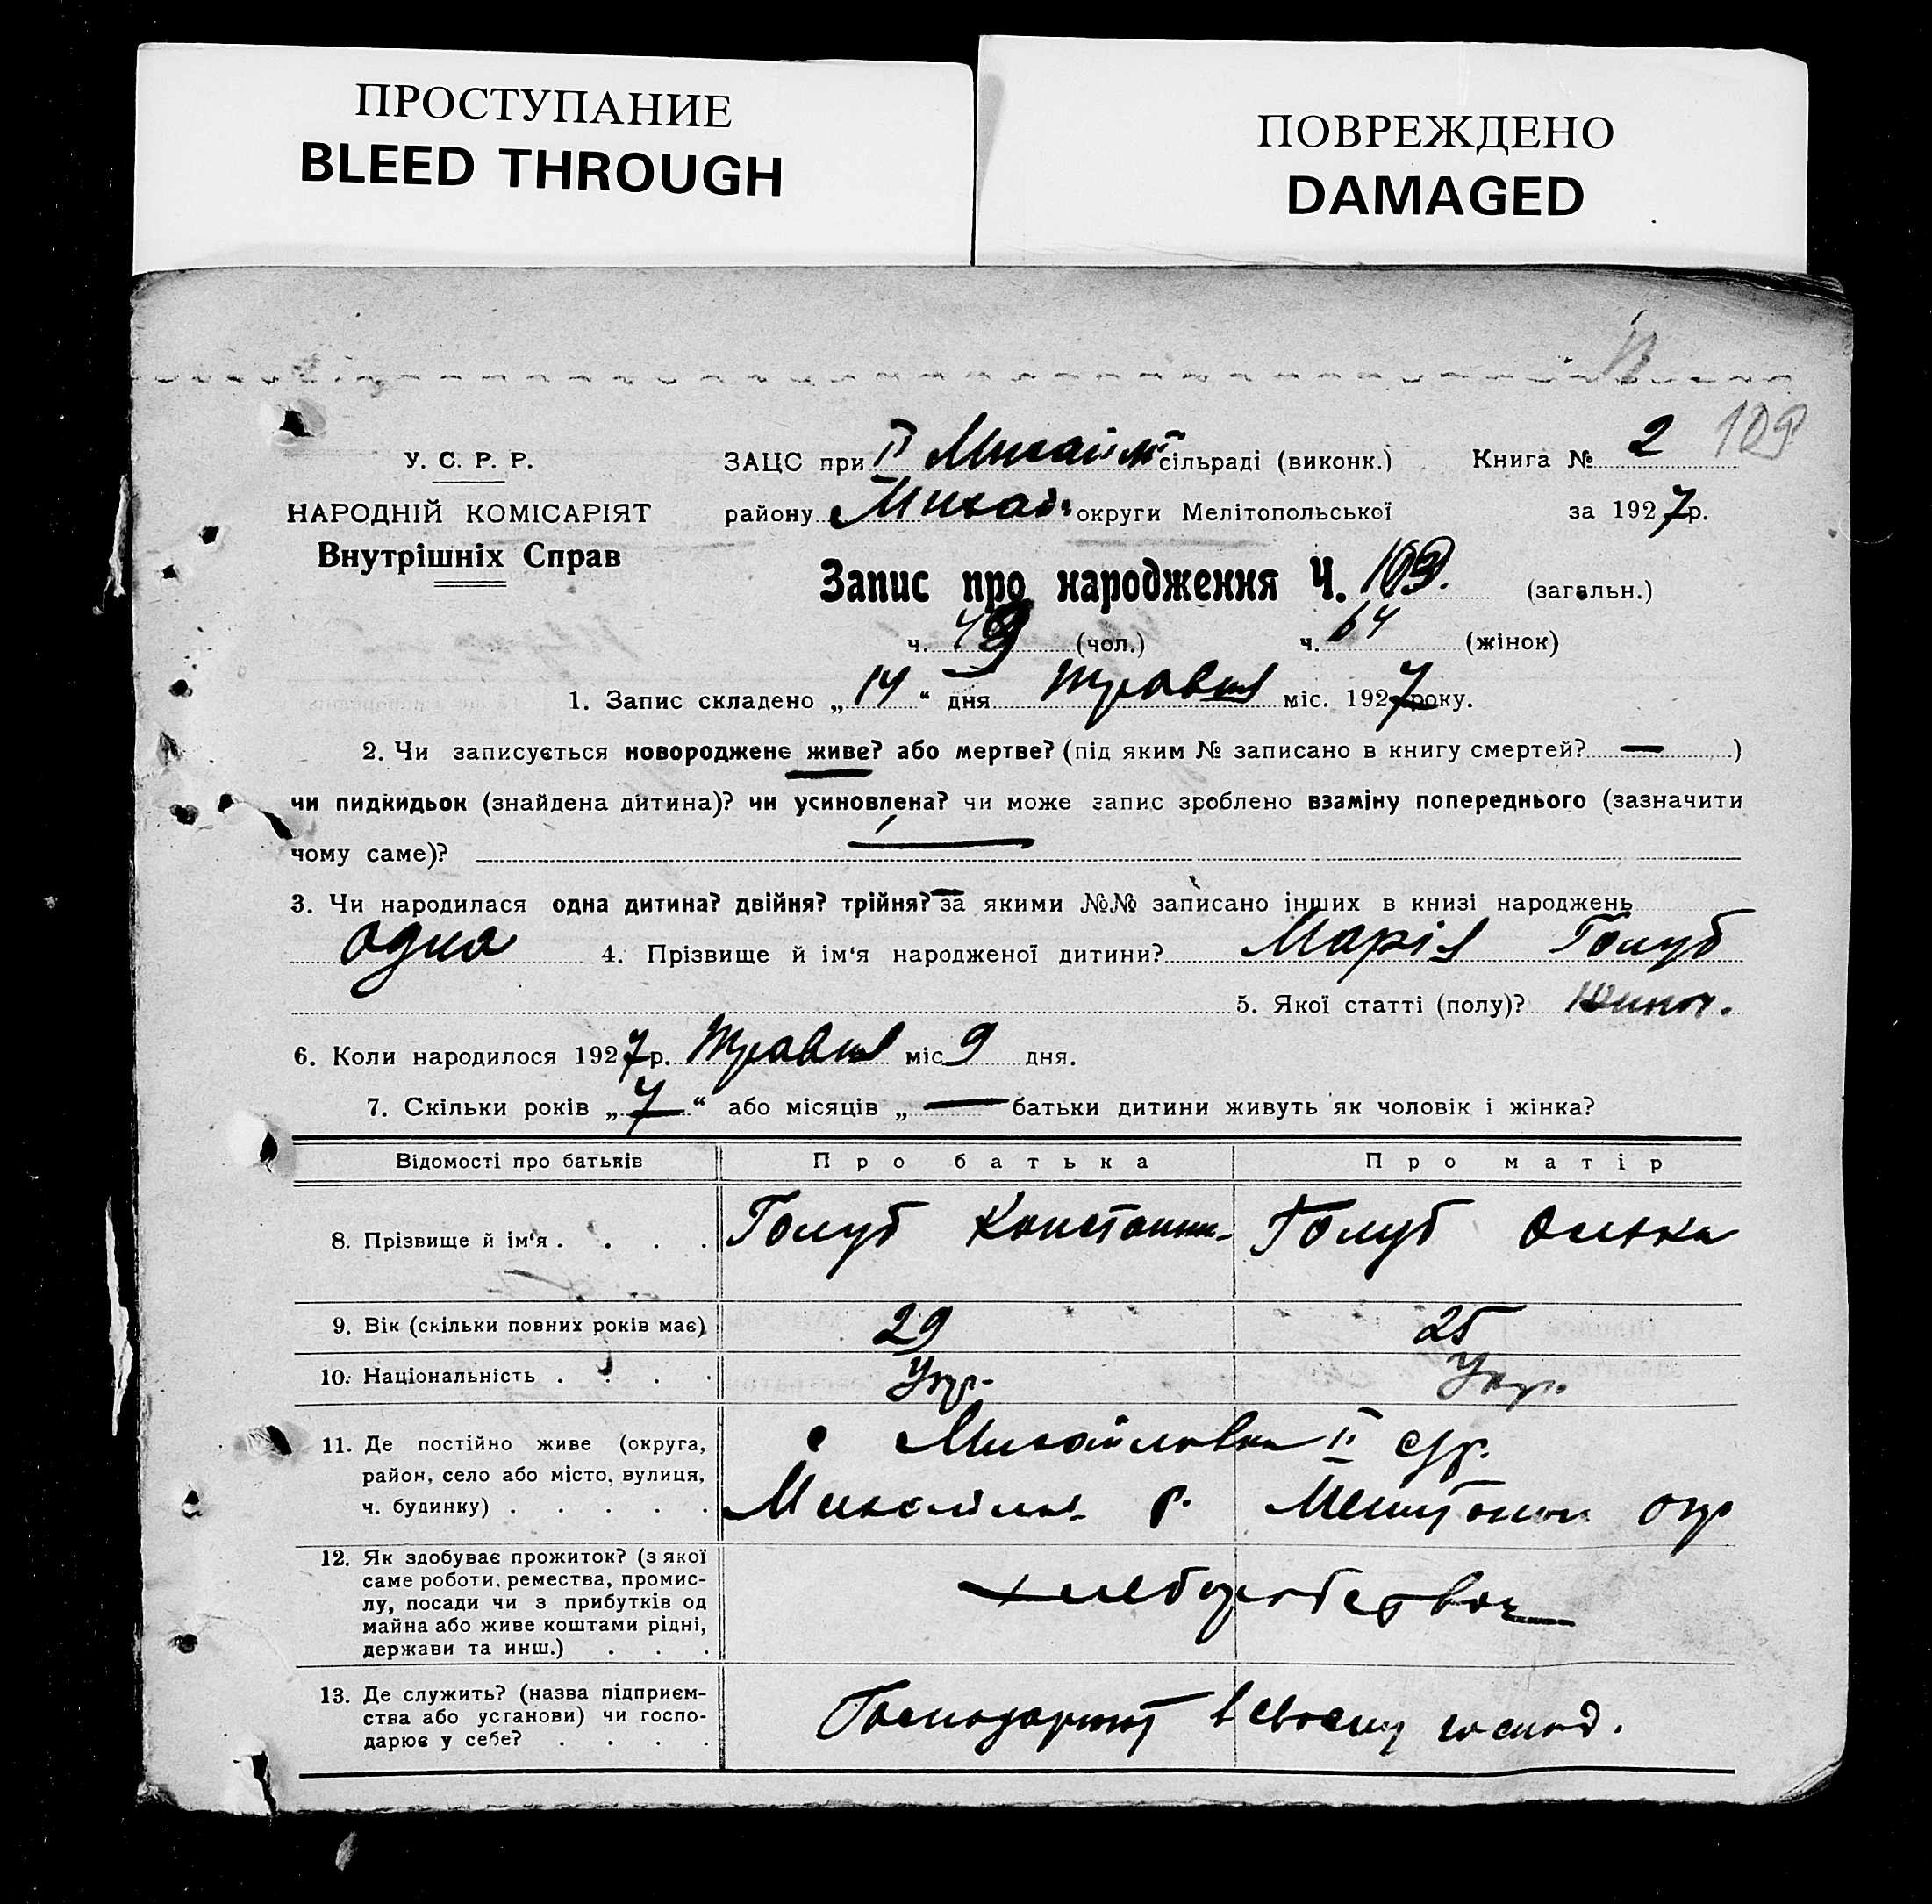 ПРОСТУПАНИЕ
BLEED THROUGH
ПОВРЕЖДЕНО
DAMAGED
109
У. С. Р. Р.
НАРОДНІЙ КОМІСАРІЯТ
Внутрішніх Справ
ЗАЦС при II Михайл сільраді (виконк.) Книга № 2
району Михай округи Мелітопольської за 1927 р.
Запис про народження Ч. 109. (загальн.)
ч. (чол.) ч. 64 (жінок)
1. Запис складено „14“ дня Травня міс. 1927 року.
2. Чи записується новороджене живе? або мертве? (під яким № записано в книгу смертей? — )
чи пидкидьок (знайдена дитина)? чи усиновлена? чи може запис зроблено взаміну попереднього (зазначити
чому саме)?
3. Чи народилася одна дитина? двійня? трійня? за якими №№ записано інших в книзі народжень
одна 4. Прізвище й ім‘я народженої дитини? Марія Голуб
5. Якої статті (полу)? жиноч.
6. Коли народилося 1927 р. Травня міс 9 дня.
7. Скільки років „7“ або місяців „ — батьки дитини живуть як чоловік і жінка?
Відомості про батьків Про батька Про матір
8. Прізвище й ім‘я . . . . Голуб Константин Голуб
9. Вік (скільки повних років має) 29 25
10. Національність . . . . Укр. Укр.
11. Де постійно живе (округа,
район, село або місто, вулиця,
ч. будинку) . . . . .
с Михайловка II с/р.
Михайлов. р. Мелитопол окр
12. Як здобуває прожиток? (з якої
саме роботи, ремества, промис-
лу, посади чи з прибутків од
майна або живе коштами рідні,
держави та инш.) . . .
хлеборобством
13. Де служить? (назва підприєм-
ства або установи) чи госпо-
дарює у себе? . . . .
Господарюют в своему господ.